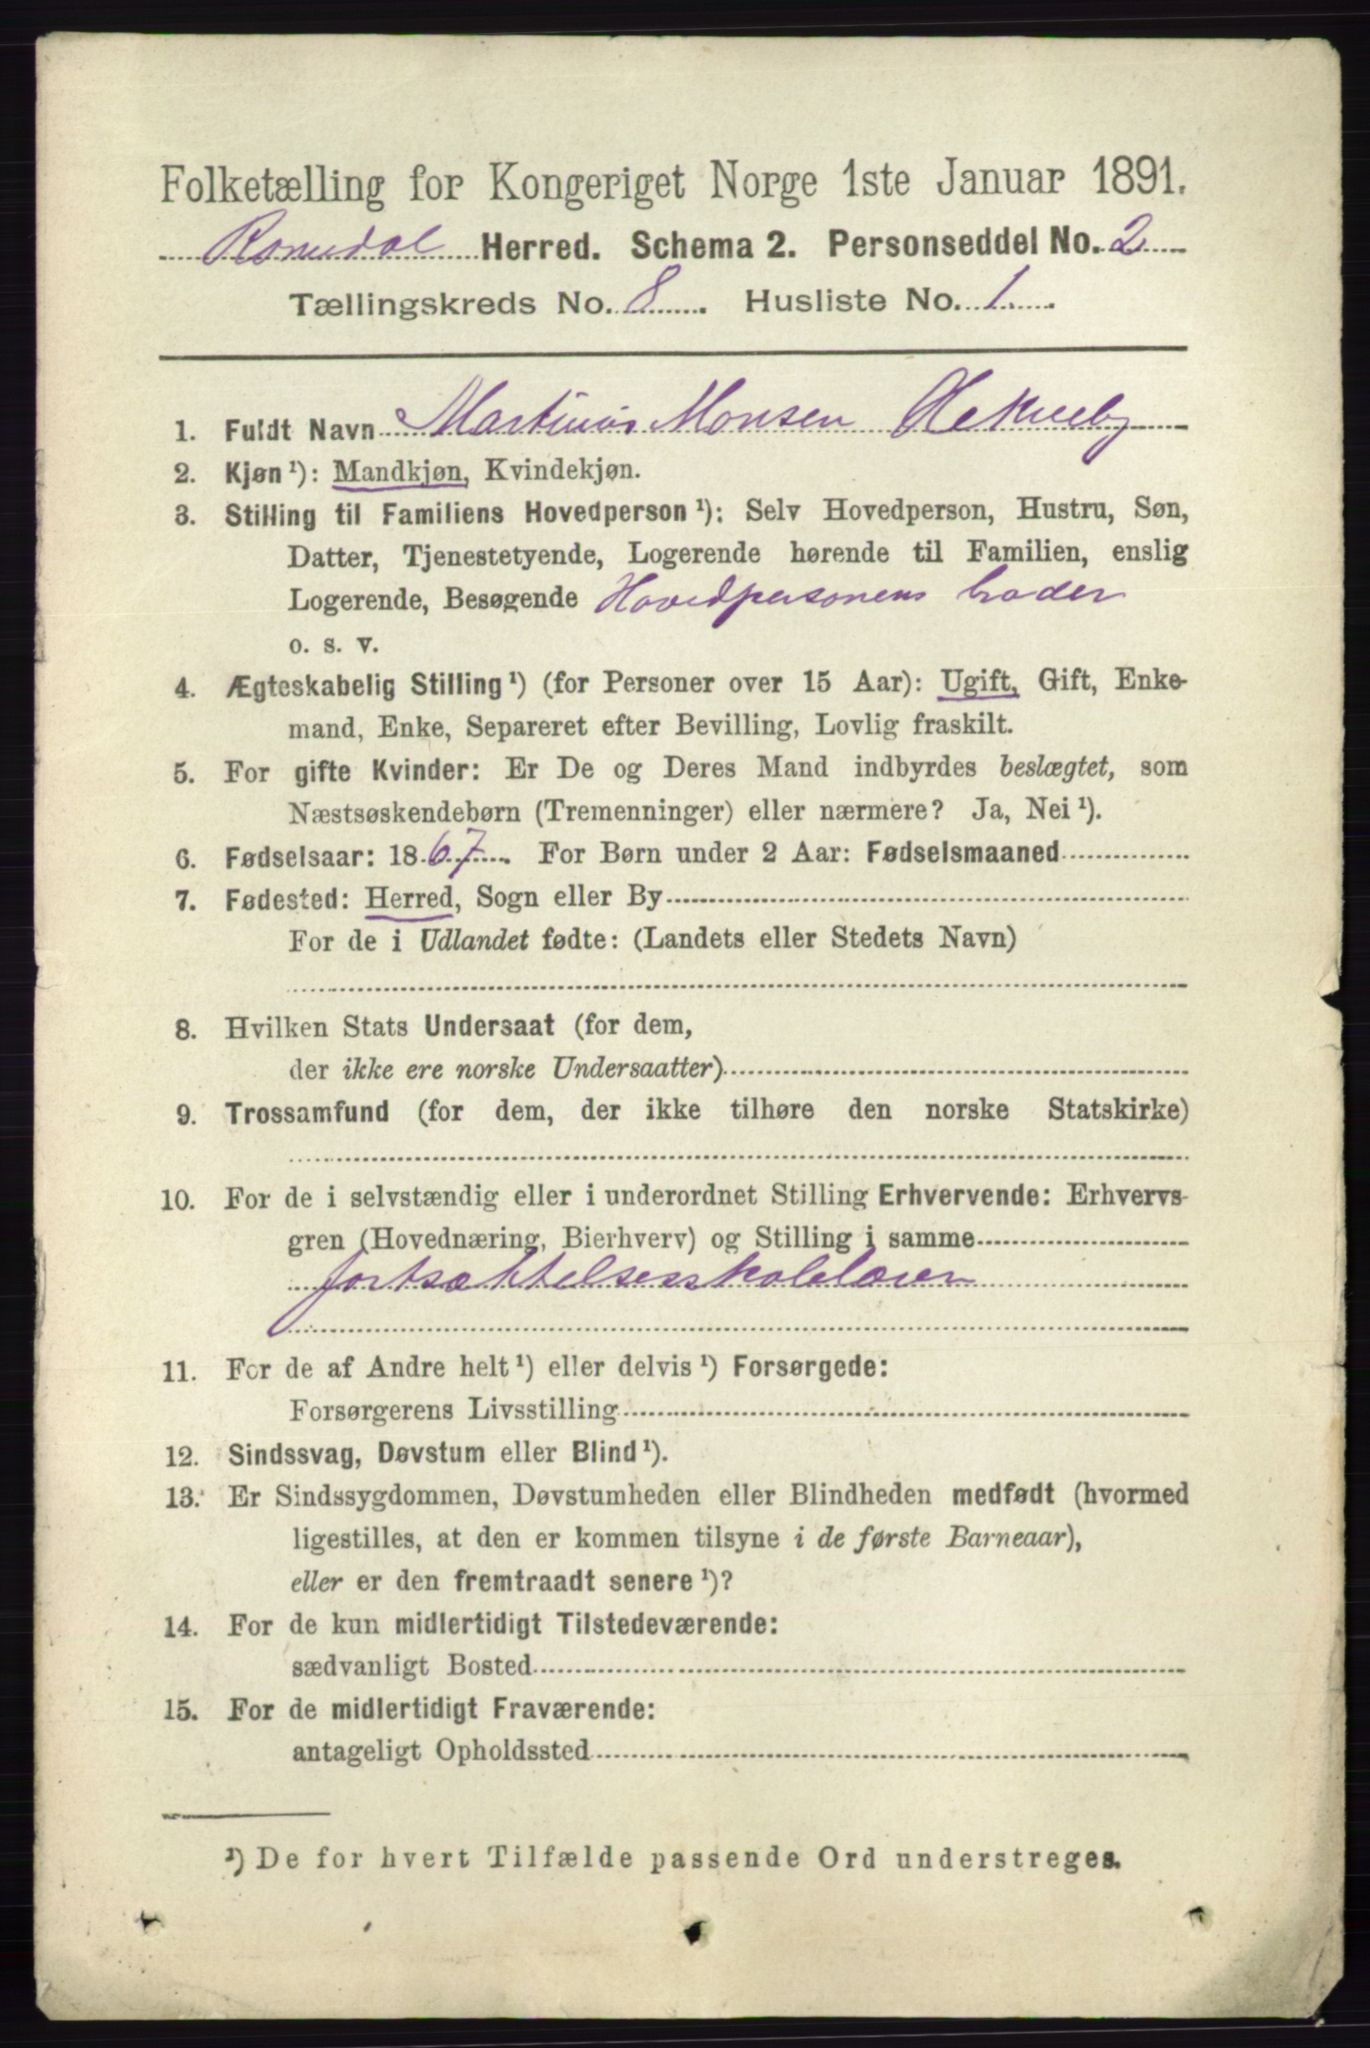 Folketælling for Kongeriget Norge 1ste Januar 1891.
Romedal Herred. Schema 2. Personseddel No. 2
Tællingskreds No. 8. Husliste No. 1.
1. Fuldt Navn Martinus Monsen
2. Kjøn ¹): Mandkjøn, Kvindekjøn.
3. Stilling til Familiens Hovedperson ¹): Selv Hovedperson, Hustru, Søn,
Datter, Tjenestetyende, Logerende hørende til Familien, enslig
Logerende, Besøgende Hovedpersonens broder
o. s. v.
4. Ægteskabelig Stilling ¹) (for Personer over 15 Aar): Ugift, Gift, Enke-
mand, Enke, Separeret efter Bevilling, Lovlig fraskilt.
5. For gifte Kvinder: Er De og Deres Mand indbyrdes beslægtet, som
Næstsøskendebørn (Tremenninger) eller nærmere? Ja, Nei ¹).
6. Fødselsaar: 1867. For Børn under 2 Aar: Fødselsmaaned
7. Fødested: Herred, Sogn eller By
For de i Udlandet fødte: (Landets eller Stedets Navn)
8. Hvilken Stats Undersaat (for dem,
der ikke ere norske Undersaatter)
9. Trossamfund (for dem, der ikke tilhøre den norske Statskirke)
10. For de i selvstændig eller i underordnet Stilling Erhvervende: Erhvervs-
gren (Hovednæring, Bierhverv) og Stilling i samme
fortsættelsesskolelærer
11. For de af Andre helt ¹) eller delvis ¹) Forsørgede:
Forsørgerens Livsstilling
12. Sindssvag, Døvstum eller Blind ¹).
13. Er Sindssygdommen, Døvstumheden eller Blindheden medfødt (hvormed
ligestilles, at den er kommen tilsyne i de første Barneaar),
eller er den fremtraadt senere ¹)?
14. For de kun midlertidigt Tilstedeværende:
sædvanligt Bosted
15. For de midlertidigt Fraværende:
antageligt Opholdssted
¹) De for hvert Tilfælde passende Ord understreges.